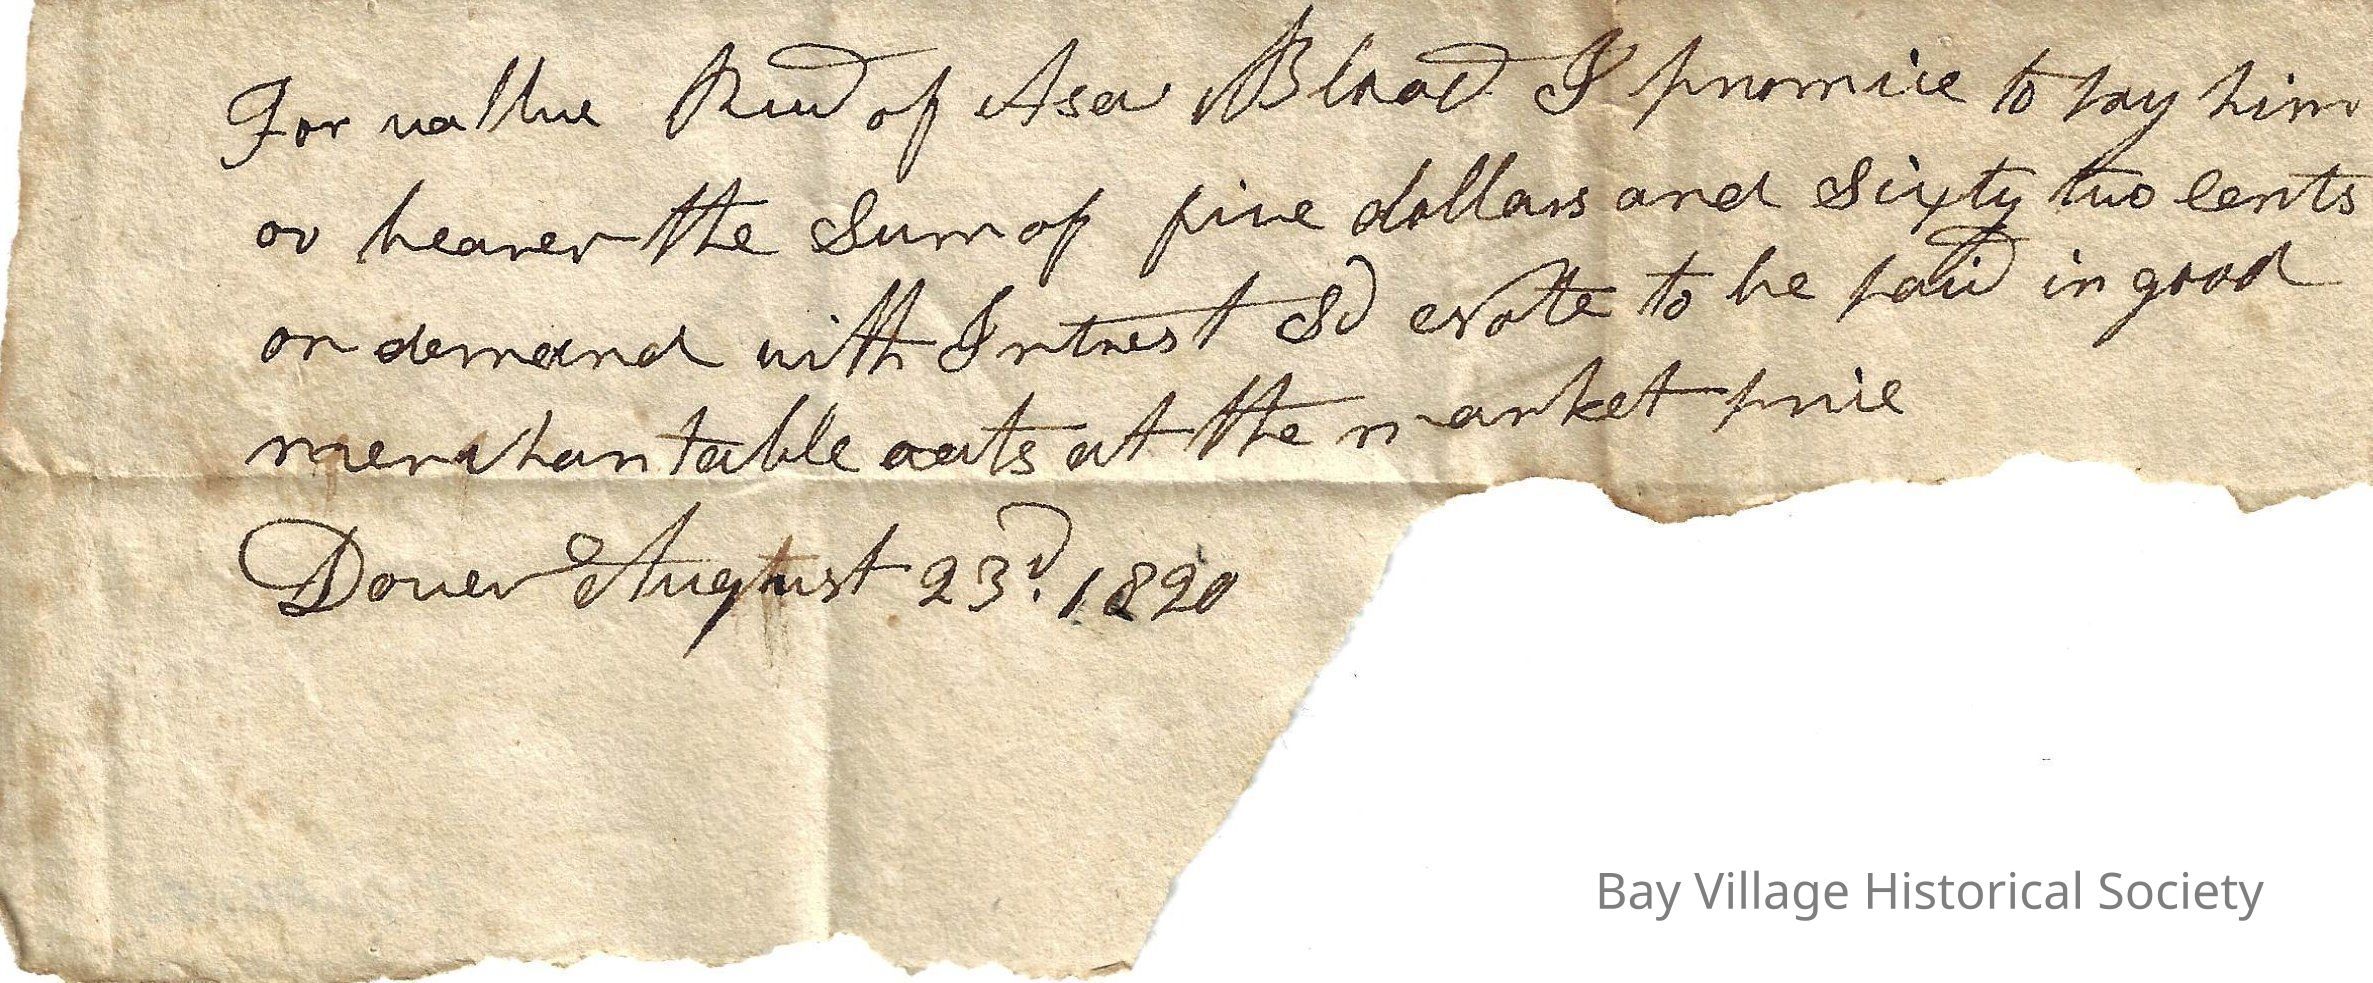 For vallue Recd of Asa Blood I promice to pay him
or bearer the Sum of five dollars and Sixty two Cents
on demand with Intrest Sd Note to be paid in good
merchantable oats at the market price
Dover August 23d. 1820
Bay Village Historical Society